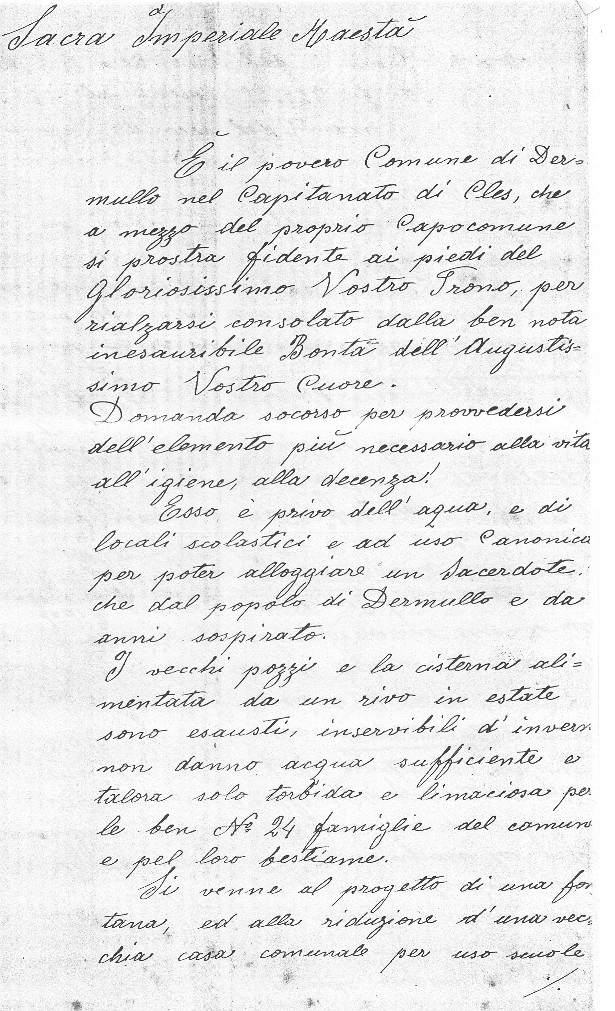 Sacra Imperiale Maestà
È il povero Comune di Der=
mullo nel Capitanato di Cles, che
a mezzo del proprio Capocomune
si prostra fidente ai piedi del
Gloriosissimo Vostro Trono, per
rialzarsi consolato dalla ben nota
inesauribile Bontà dell'Augustis=
simo Vostro Cuore.
Domanda socorso per provvedersi
dell'elemento più necessario alla vita
all'igiene, alla decenza!
Esso è privo dell'aqua, e di
locali scolastici e ad uso Canonica
per poter alloggiare un Sacerdote.
che dal popolo di Dermullo e da
anni sospirato.
I vecchi pozzi e la cisterna ali=
mentata da un rivo in estate
sono esausti, inservibili d'invern
non danno acqua sufficiente e
talora solo torbida e limaciosa per
le ben No 24 famiglie del comun
e pel loro bestiame.
Si venne al progetto di una fon
tana, ed alla riduzione d'una vec=
chia casa comunale per uso scuole
./.